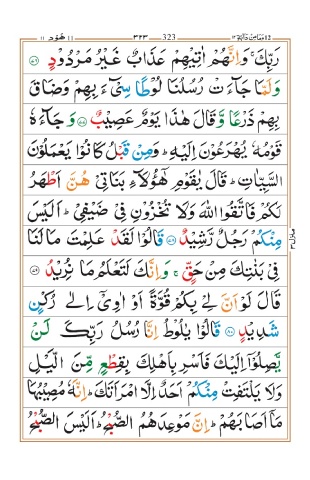 ١١ هُوۡد ١١ ٣٢٣ 323
رَبِّكَ ۚ وَاِنَّهُمۡ اٰتِيۡهِمۡ عَذَابٌ غَيۡرُ مَرۡدُوۡدٍ ﴿٧٦﴾
وَلَمَّا جَآءَتۡ رُسُلُنَا لُوۡطًا سِىۡٓءَ بِهِمۡ وَضَاقَ
بِهِمۡ ذَرۡعًا وَّقَالَ هٰذَا يَوۡمٌ عَصِيۡبٌ ﴿٧٧﴾ وَجَآءَهٗ
قَوۡمُهٗ يُهۡرَعُوۡنَ اِلَيۡهِ ؕ وَمِنۡ قَبۡلُ كَانُوۡا يَعۡمَلُوۡنَ
السَّيِّاٰتِ ؕ قَالَ يٰقَوۡمِ هٰٓؤُلَآءِ بَنَاتِىۡ هُنَّ اَطۡهَرُ
لَـكُمۡ فَاتَّقُوا اللّٰهَ وَلَا تُخۡزُوۡنِ فِىۡ ضَيۡفِىۡ ؕ اَلَيۡسَ
مِنۡكُمۡ رَجُلٌ رَّشِيۡدٌ ﴿٧٨﴾ قَالُوۡا لَقَدۡ عَلِمۡتَ مَا لَـنَا
فِىۡ بَنٰتِكَ مِنۡ حَقٍّ ۚ وَاِنَّكَ لَـتَعۡلَمُ مَا نُرِيۡدُ ﴿٧٩﴾
قَالَ لَوۡ اَنَّ لِىۡ بِكُمۡ قُوَّةً اَوۡ اٰوِىۡۤ اِلٰى رُكۡنٍ
شَدِيۡدٍ ﴿٨٠﴾ قَالُوۡا يٰلُوۡطُ اِنَّا رُسُلُ رَبِّكَ لَنۡ
يَّصِلُوۡۤا اِلَيۡكَ فَاَسۡرِ بِاَهۡلِكَ بِقِطۡعٍ مِّنَ الَّيۡلِ
وَلَا يَلۡتَفِتۡ مِنۡكُمۡ اَحَدٌ اِلَّا امۡرَاَتَكَ ؕ اِنَّهٗ مُصِيۡبُهَا
مَاۤ اَصَابَهُمۡ ؕ اِنَّ مَوۡعِدَهُمُ الصُّبۡحُ ؕ اَلَيۡسَ الصُّبۡحُ